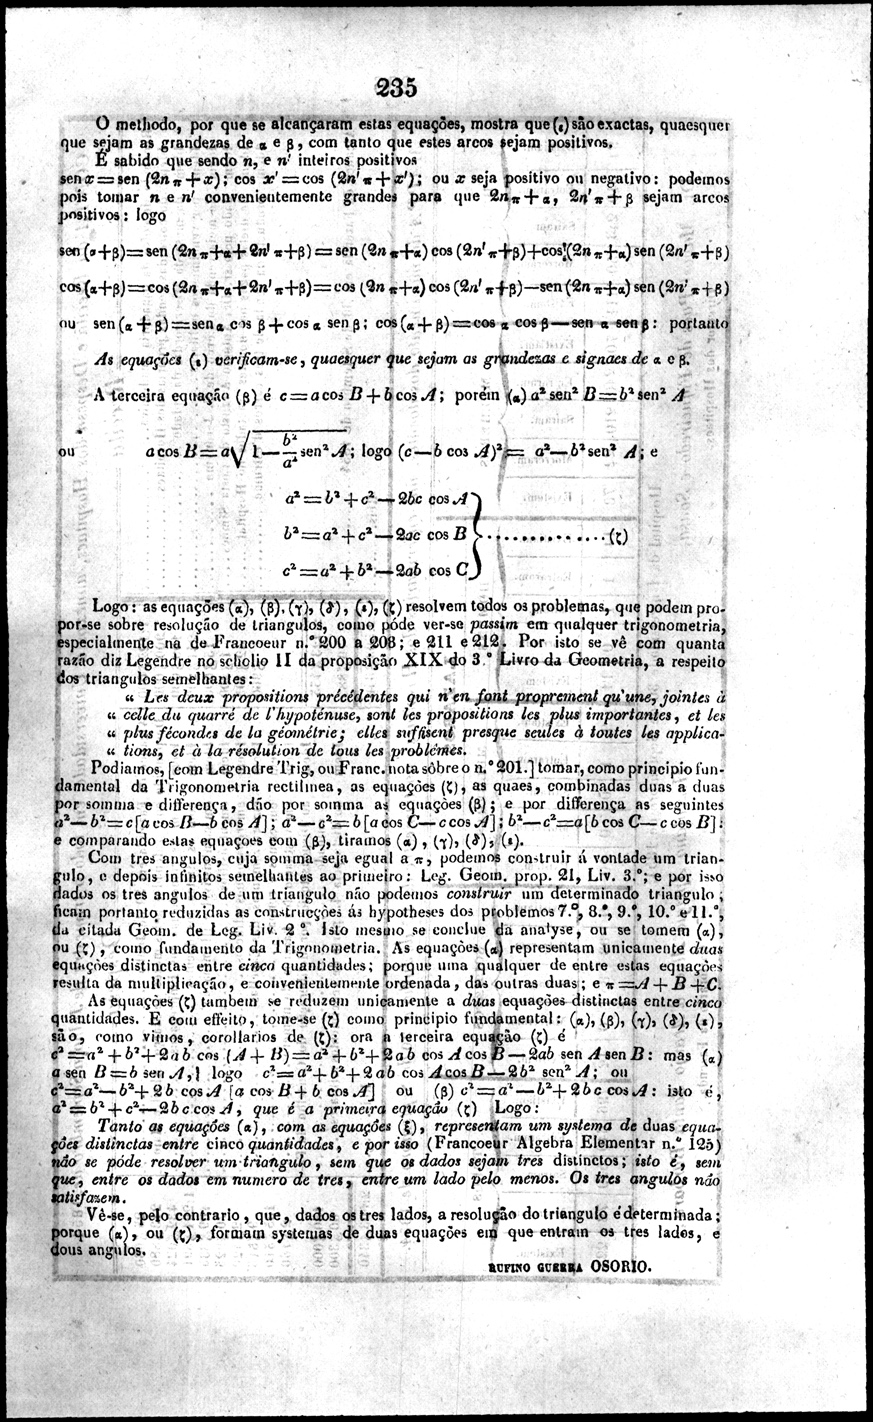 235
O methodo, por que se alcançaram estas equações, mostra que (ε) são exactas, quaesquer
que sejam as grandezas de α e β, com tanto que estes arcos sejam positivos.
É sabido que sendo n, e n' inteiros positivos
sen x=sen (2nπ+x); cos x'=cos (2n'π+x'); ou x seja positivo ou negativo: podemos
pois tomar n e n' convenientemente grandes para que 2nπ+α, 2n'π+β sejam arcos
positivos: logo
sen (α+β)=sen (2nπ+α+2n'π+β)=sen (2nπ+α) cos (2n'π+β)+cos (2nπ+α) sen (2n'π+β)
cos (α+β)=cos (2nπ+α+2n'π+β)=cos (2nπ+α) cos (2n'π+β)—sen (2nπ+α) sen (2n'π+β)
ou sen (α+β)=sen α cos β+cos α sen β; cos (α+β)=cos α cos β—sen α sen β: portanto
As equações (ε) verificam-se, quaesquer que sejam as grandezas e signaes de α e β.
A terceira equação (β) é c=a cos B+b cos A; porém (α) a² sen² B=b² sen² A
ou a cos B=a√1—b²/a² sen² A; logo (c—b cos A)²= a²—b² sen² A; e
a²=b²+c²—2bc cos A
b²=a²+c²—2ac cos B}..............(ζ)
c²=a²+b²—2ab cos C
Logo: as equações (α), (β), (γ), (δ), (ε), (ζ) resolvem todos os problemas, que podem pro-
por-se sobre resolução de triangulos, como póde ver-se passim em qualquer trigonometria,
especialmente na de Francoeur n.º 200 a 208; e 211 e 212. Por isto se vê com quanta
razão diz Legendre no scholio II da proposição XIX do 3.º Livro da Geometria, a respeito
dos triangulos semelhantes:
“ Les deux propositions précédentes qui n'en font proprement qu'une, jointes à
“ celle du quarré de l'hypoténuse, sont les propositions les plus importantes, et les
“ plus fécondes de la géométrie; elles suffisent presque seules à toutes les applica-
“ tions, et à la résolution de tous les problémes.
Podiamos, [com Legendre Trig, ou Franc. nota sôbre o n.º 201.] tomar, como principio fun-
damental da Trigonometria rectilinea, as equações (ζ), as quaes, combinadas duas a duas
por somma e differença, dão por somma as equações (β); e por differença as seguintes
a²—b²=c[a cos B—b cos A]; a²—c²=b[a cos C—c cos A]; b²—c²=a[b cos C—c cos B]:
e comparando estas equações com (β), tiramos (α), (γ), (δ), (ε).
Com tres angulos, cuja somma seja egual a π, podemos construir á vontade um trian-
gulo, e depois infinitos semelhantes ao primeiro: Leg. Geom. prop. 21, Liv. 3.º; e por isso
dados os tres angulos de um triangulo não podemos construir um determinado triangulo;
ficam portanto reduzidas as construcções ás hypotheses dos problemos 7.º, 8.º, 9.º, 10.º e 11.º,
da citada Geom. de Leg. Liv. 2º. Isto mesmo se conclue da analyse, ou se tomem (α),
ou (ζ), como fundamento da Trigonometria. As equações (α) representam unicamente duas
equações distinctas entre cinco quantidades; porque uma qualquer de entre estas equações
resulta da multiplicação, e convenientemente ordenada, das outras duas; e π=A+B+C.
As equações (ζ) tambem se reduzem unicamente a duas equações distinctas entre cinco
quantidades. E com effeito, tome-se (ζ) como principio fundamental: (α), (β), (γ), (δ), (ε),
são, como vimos, corollarios de (ζ): ora a terceira equação (ζ) é
c²=a²+b²+2ab cos (A+B)=a²+b²+2ab cos A cos B—2ab sen A sen B: mas (α)
a sen B=b sen A, logo c²=a²+b²+2ab cos A cos B—2b² sen² A; ou
c²=a²—b²+2b cos A [a cos B+b cos A] ou (β) c²=a²—b²+2bc cos A: isto é,
a²=b²+c²—2bc cos A, que é a primeira equação (ζ) Logo:
Tanto as equações (α), com as equações (ξ), representam um systema de duas equa-
ções distinctas entre cinco quantidades, e por isso (Francoeur Algebra Elementar n.º 125)
não se póde resolver um triangulo, sem que os dados sejam tres distinctos; isto é, sem
que, entre os dados em numero de tres, entre um lado pelo menos. Os tres angulos não
satisfazem.
Vê-se, pelo contrario, que, dados os tres lados, a resolução do triangulo é determinada;
porque (α), ou (ζ), formam systemas de duas equações em que entram os tres lados, e
dous angulos.
RUFINO GUERRA OSORIO.